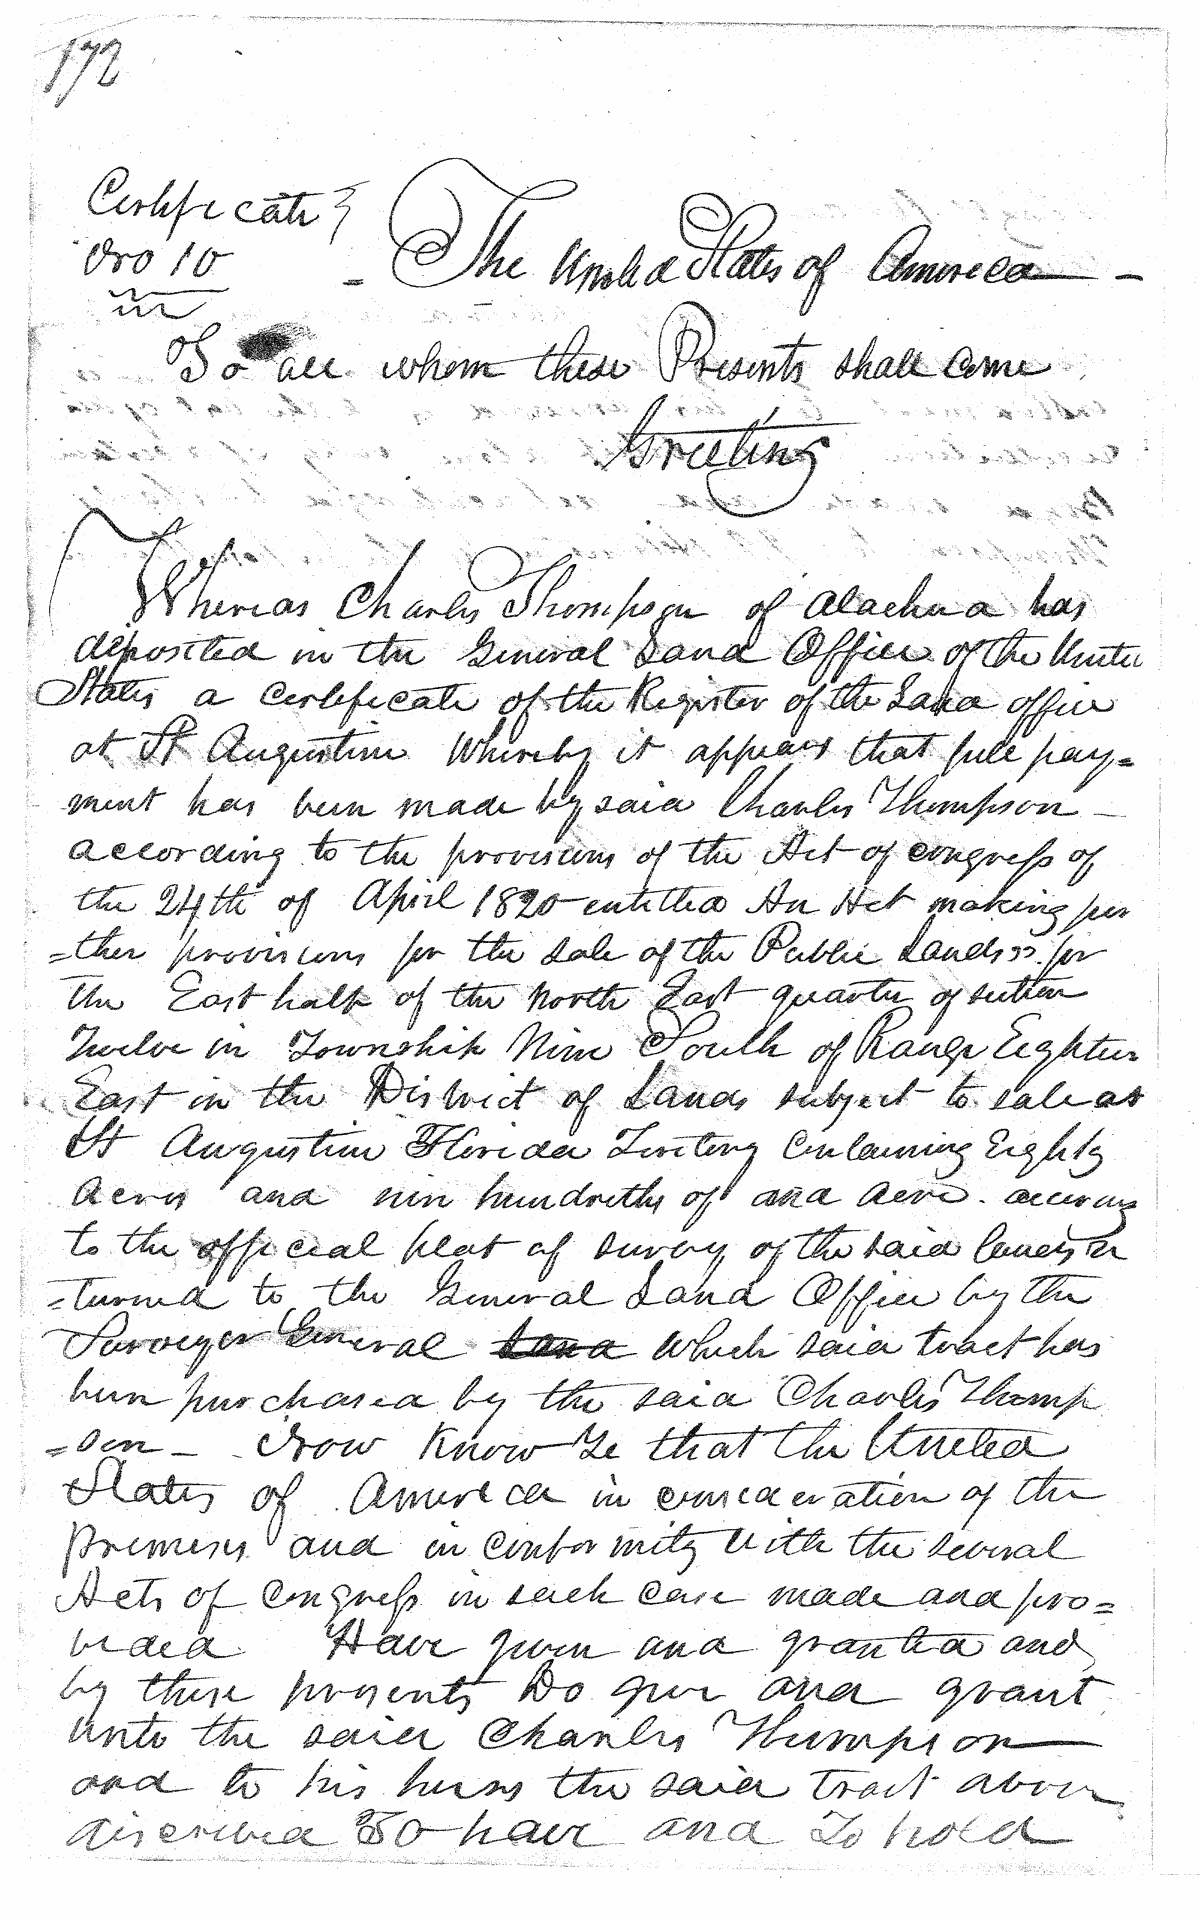 172
Certificate }
No 10
- The United States of America -
To all whom these Presents shall come
Greeting
Whereas Charles Thompson of Alachua has
deposited in the General Land Office of the United
States a certificate of the Register of the Land office
at St Augustine Whereby it appears that full pay=
ment has been made by said Charles Thompson -
according to the provisions of the Act of congress of
the 24th of April 1820 entitled An Act making fur
=ther provisions for the sale of the Public Lands" for
the East half of the North East quarter of section
Twelve in Township Nine South of Range Eighteen
East in the District of Lands subject to sale at
St Augustine Florida Teritory Containing Eighty
Acres and nin hundreths of and Acre. accordng
to the official plat of survey of the said lands re
=turned to the General Land Office by the
Surveyor General Land Which said tract has
been purchased by the said Charles Thomp
=son - Now Know Ye that the United
States of America in consideration of the
Premises and in conformity with the several
Acts of Congress in such case made and pro=
vided Have given and granted and
by these presents Do give and grant
unto the said Charles Thompson
and to his heirs the said tract above
discribed To have and To hold